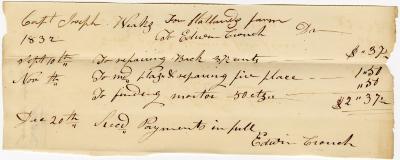 Capt Joseph Weeks For Flatlands farm
1832 To Edwin Crouch Dr
Sept 10th To repairing Back 37 cnts $"37½
Nov th To & repairing fire place 1"50
To finding morter 50 cts "50
$2"37½
Dec 20th Recd Payments in full
Edwin Crouch